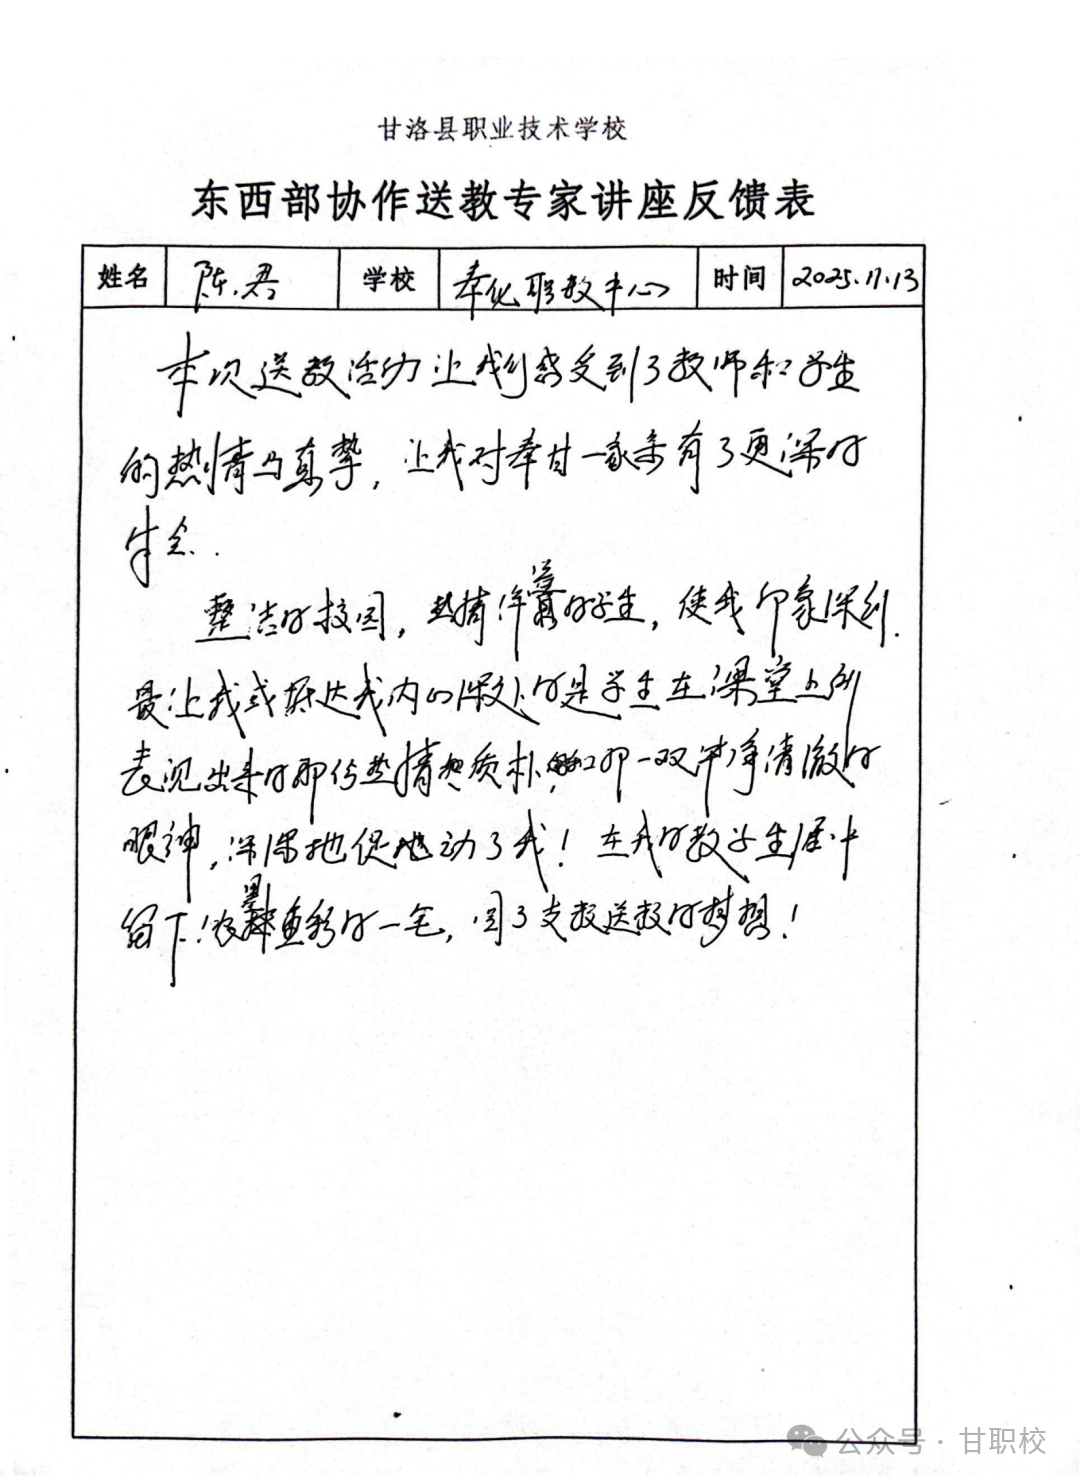 甘洛县职业技术学校
东西部协作送教专家讲座反馈表
姓名 陈君 学校 奉化职教中心 时间 2025.11.13
本次送教活动让我们感受到了教师和学生
的热情与真挚，让我对奉甘一家亲有了更深的
体会.
整洁的校园，热情洋溢的学生，使我印象深刻.
最让我或抵达我内心深处的是学生在课堂上所
表现出来的那份热情和质朴，和那一双双清澈的
眼神，深深地促动了我！在我的教学生涯中
留下浓墨重彩的一笔，圆了支教送教的梦想！
公众号·甘职校